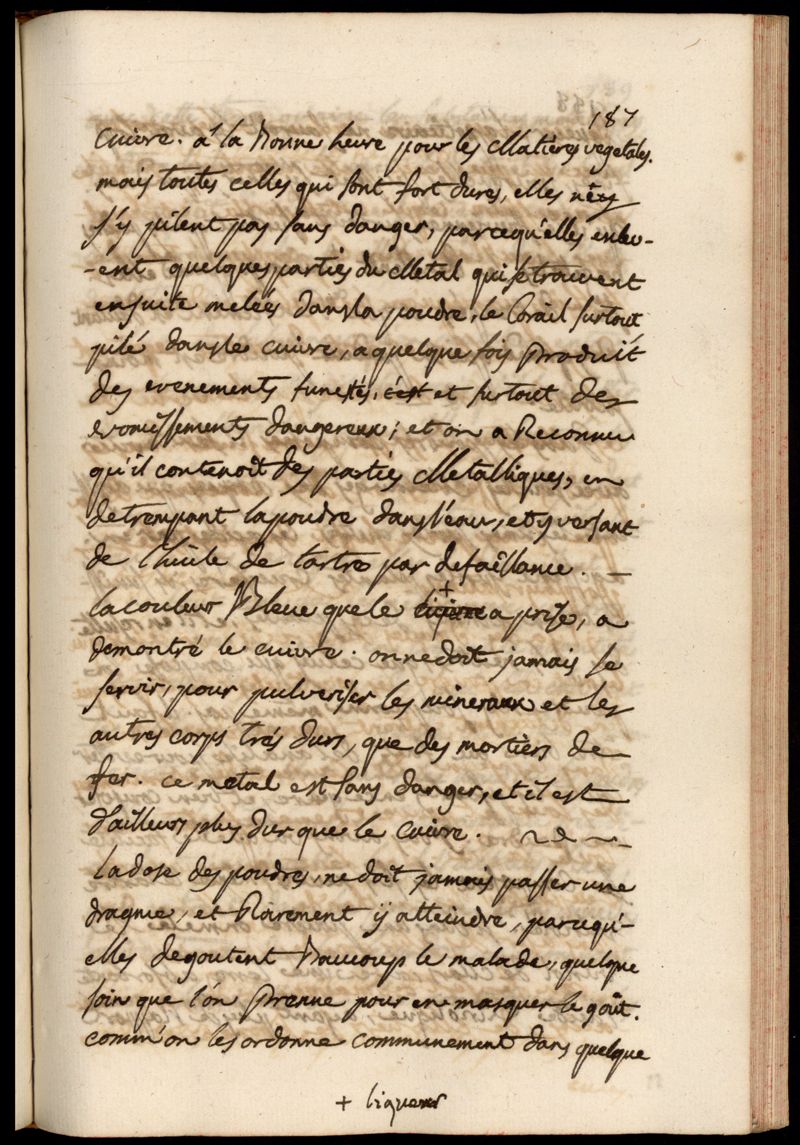 187
cuivre. a la Bonne heure pour les Matieres vegetales.
mais toutes celles qui sont fort dures, elles
s'y pilent pas sans danger, parcequ'elles enlev-
-ent quelques parties du Metal qui se trouvent
ensuite melées dans la poudre, le Corail surtout
pilé dans le cuivre, a quelque fois Produit
des evenements funestes, c'est et surtout des
vomissements dangereux; et on a Reconnu
qu'il contenoit des parties Metalliques, en
detrempant la poudre dans l'eau, et y versant
de l'huile de tartre par defaillance. —
la couleur Bleue que le + a prise, a
demontré le cuivre. on ne doit jamais se
servir, pour pulveriser les mineraux et les
autres corps trés durs, que des mortiers de
fer. ce metal est sans danger, et il est
d'ailleurs plus dur que le cuivre.
la dose des poudres, ne doit jamais passer une
dragme, et Rarement ÿ atteindre, parcequ'-
elles degoutent Baucoup le malade, quelque
soin que l'on Prenne pour en masquer le goût.
comm'on les ordonne communement dans quelque
+ liqueur